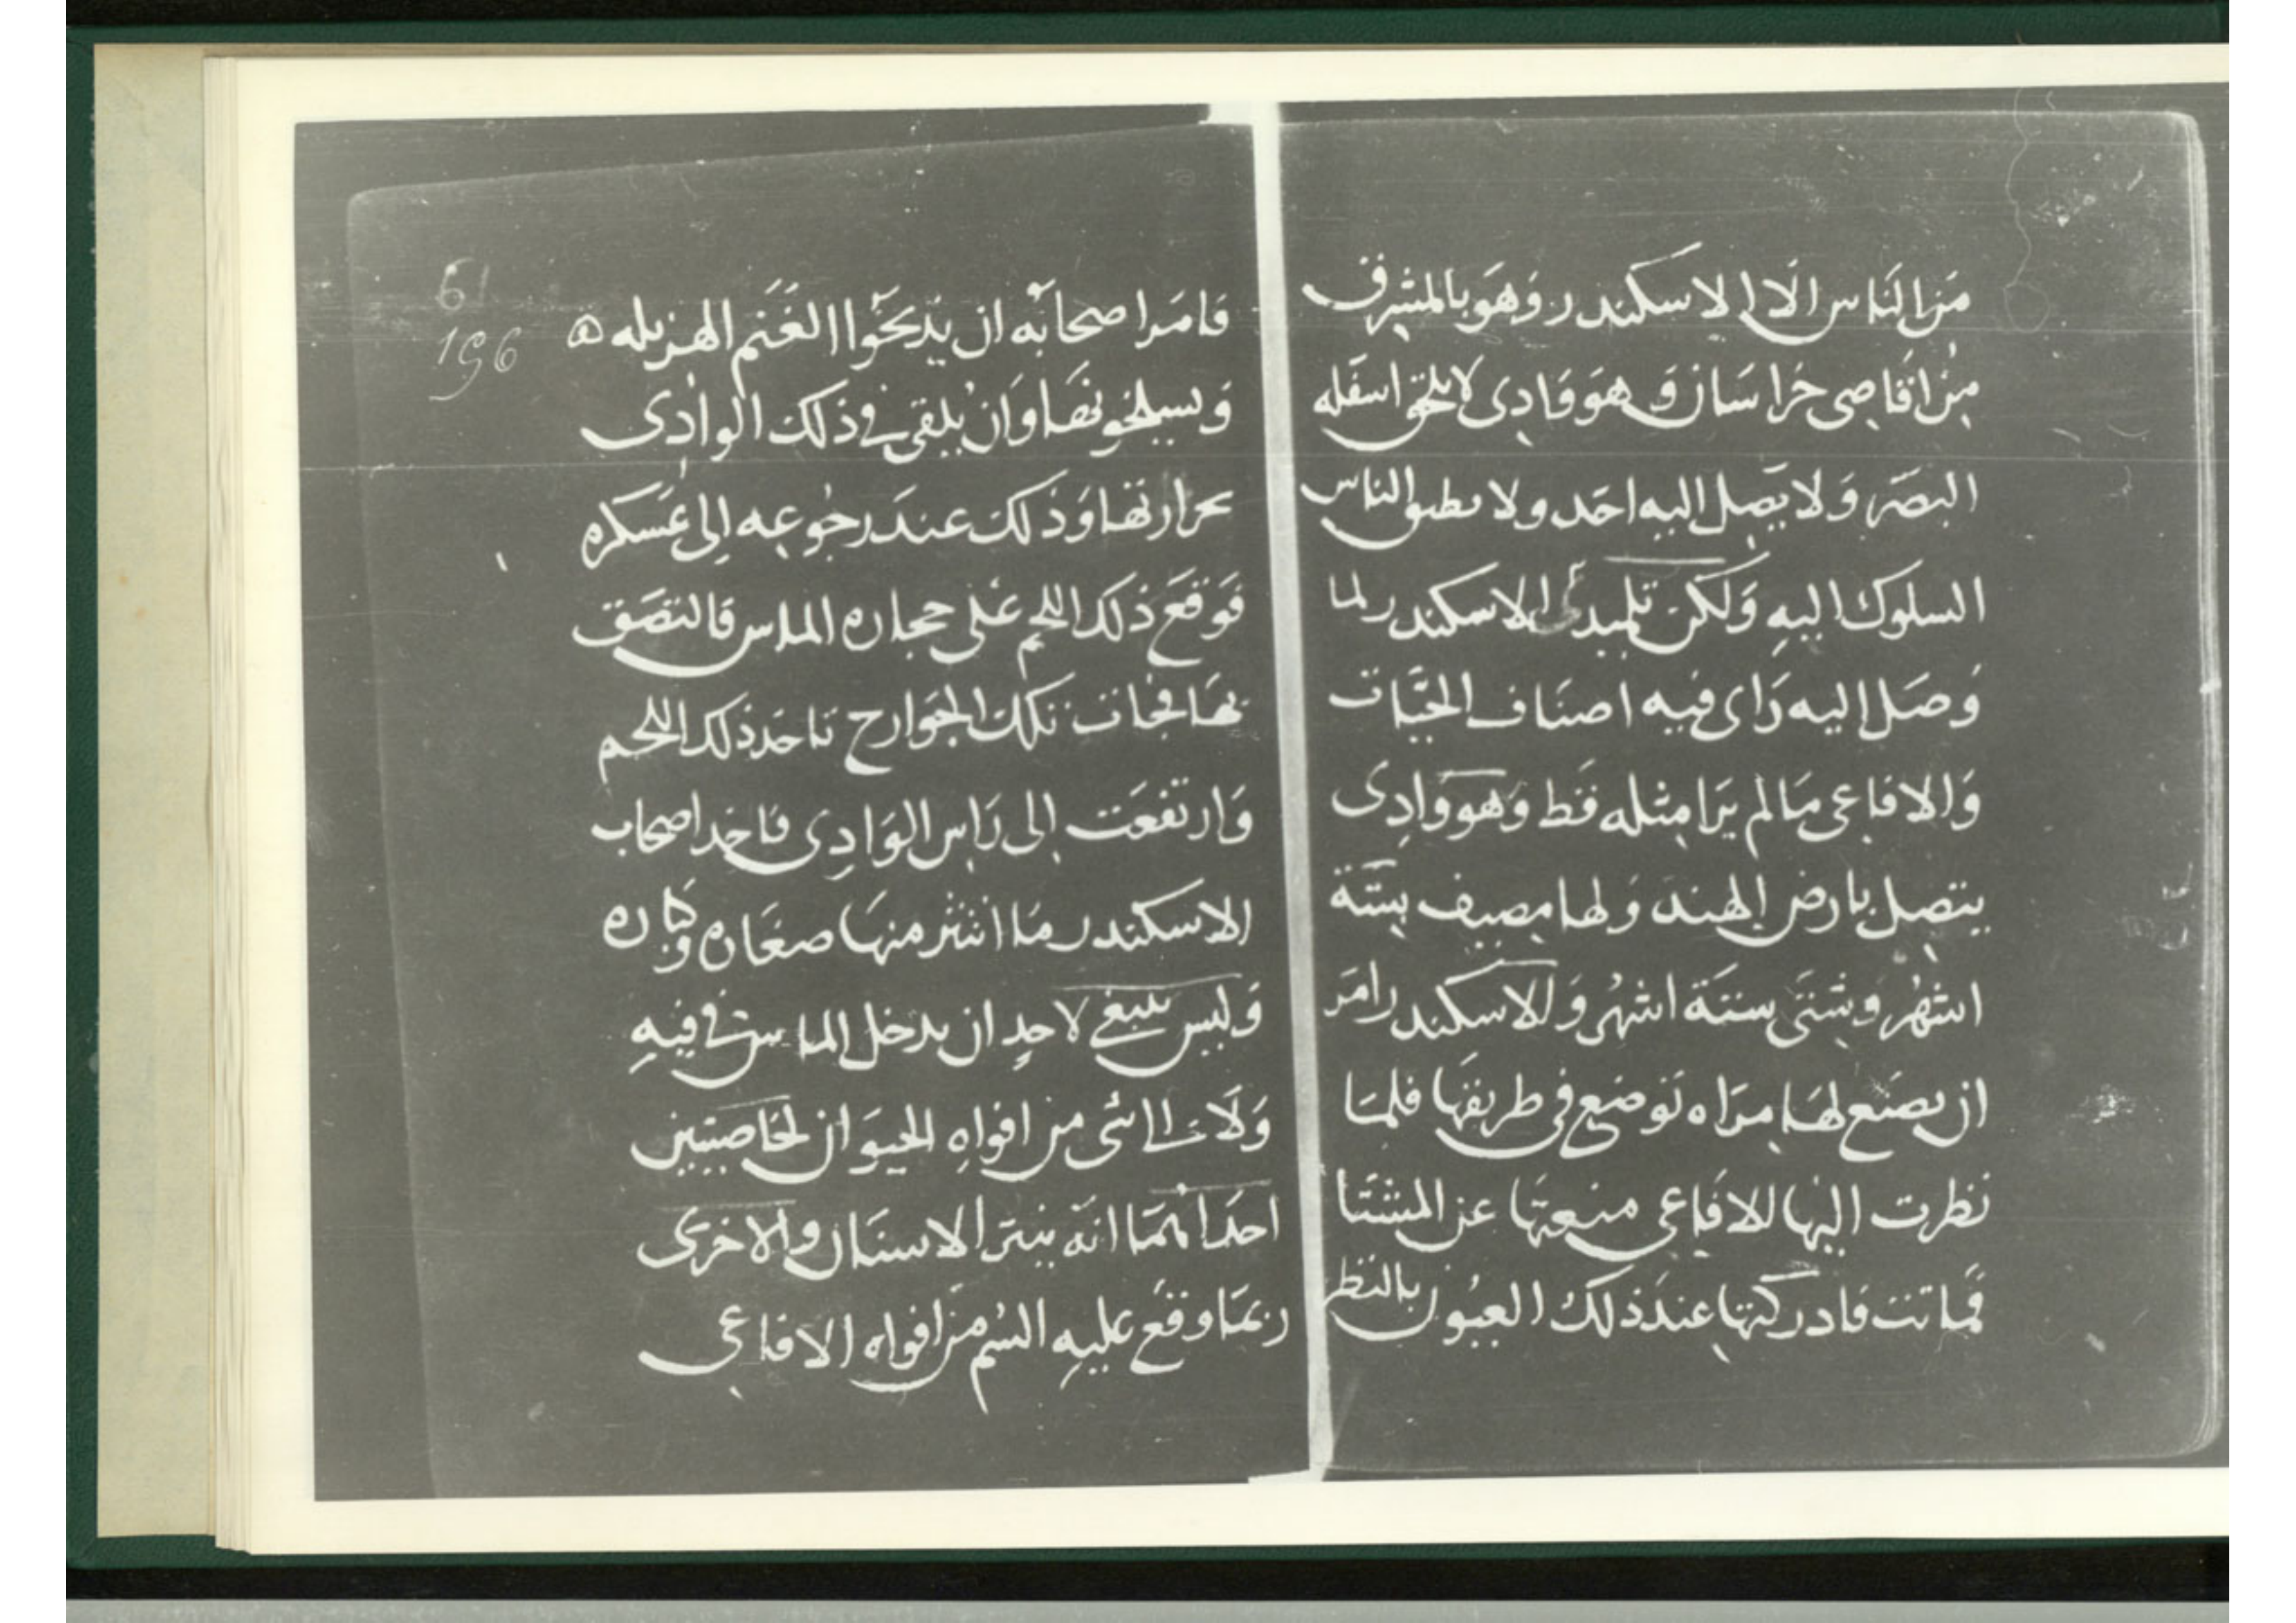 من الناس الا الاسكندر وهو بالمشرق
من اقاصى خراسان وهو وادى لا يلحق اسفله
البصر ولا يصل اليه احد ولا يطيق الناس
السلوك اليه ولكن تلميدى الاسكندر لما
وصل اليه راى فيه اصناف الحيات
والافاعى مالم يرا مثله قط وهو وادى
يتصل بارض الهند ولها مصيف ستة
اشهر وشتى ستة اشهر والاسكندر امر
ان يصنع لها مراه توضع فى طريقها فلما
نظرت اليها الافاعى منعتها عن المشتا
فماتت فادركتها عند ذلك العيون بالنظر
61
196
فامر اصحابه ان يذبحوا الغنم الهزيله
ويسلخونها وان يلقى فى ذلك الوادى
بحرارتها وذلك عند رجوعه الى عسكره
فوقع ذلك اللحم على حجاره الماس فالتصق
بها فجات تلك الجوارح تاخد ذلك اللحم
وارتفعت الى راس الوادى فاخد اصحاب
الاسكندر ما انتثر منها صغاره وكباره
وليس ينبغى لاحد ان يدخل الماس فى فيه
ولا شى من افواه الحيوان لخاصيتين
احداهما انه يبتر الاسنان والاخرى
ربما وقع عليه السم من افواه الافاعى